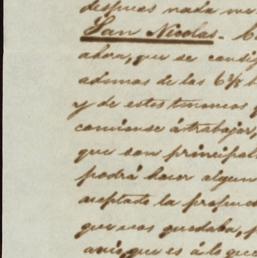 despues nada me
San Nicolas - 
ahora, que se consig
ademas de las 6½ b
y de estos tenemos q
comiense á trabajar,
que son principal
podrá hacer algun
aceptado la propues
que nos quedaba, p
avio, que es á lo que